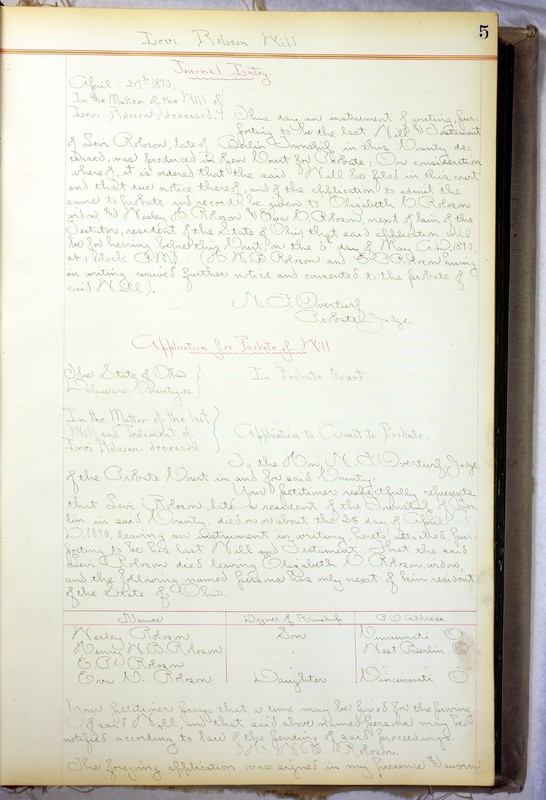 5
Levi Roloson Will
Journal Entry.
April 29th 1890.
In the Matter of the Will of
Levi Roloson, deceased.
This day an instrument of writing, pur-
porting to be the last Will & Testament
of Levi Roloson, late of Berlin Township in this County de-
ceased, was produced in open Court for Probate; On consideration
whereof, it is ordered that the said Will be filed in this court
and that due notice thereof, and of the application to admit the
same to probate and record be given to Elizabeth Roloson
widow, & Wesley Roloson & Eva Roloson, next of kin of the
Testator, resident of the State of Ohio that said application will
be for hearing before this Court on the 5th day of May A.D. 1890,
at 1 o'clock P.M. (H.W.B. Roloson and E.P. Roloson having
in writing waived further notice and consented to the probate of
said Will).
N. F. Overturf
Probate Judge
Application for Probate of Will
The State of Ohio
Delaware County, ss
In Probate Court
In the Matter of the last
Will and Testament of
Levi Roloson deceased.
Application to Admit to Probate.
To the Hon, N. F. Overturf, Judge
of the Probate Court in and for said County.
Your petitioner respectfully represents
that Levi Roloson, late a resident of the Township of Ber-
lin in said County, died on or about the 25 day of April A.
D. 1890, leaving an instrument in writing, hereto attached, pur-
porting to be his last Will and Testament; That the said
Levi Roloson died leaving Elizabeth Roloson, widow,
and the following named persons his only next of kin resident
of the State of Ohio.
Names Degree of Kinship P.O. Address
Wesley Roloson Son Cincinnati O
Henry W.B. Roloson " West Berlin O
E P Roloson
Eva Roloson Daughter Cincinnati O
Your petitioner prays that a time may be fixed for the proving
of said Will and that said above named persons may be
notified according to law of the pending of said proceedings.
Roloson.
The foregoing application was signed in my presence & sworn